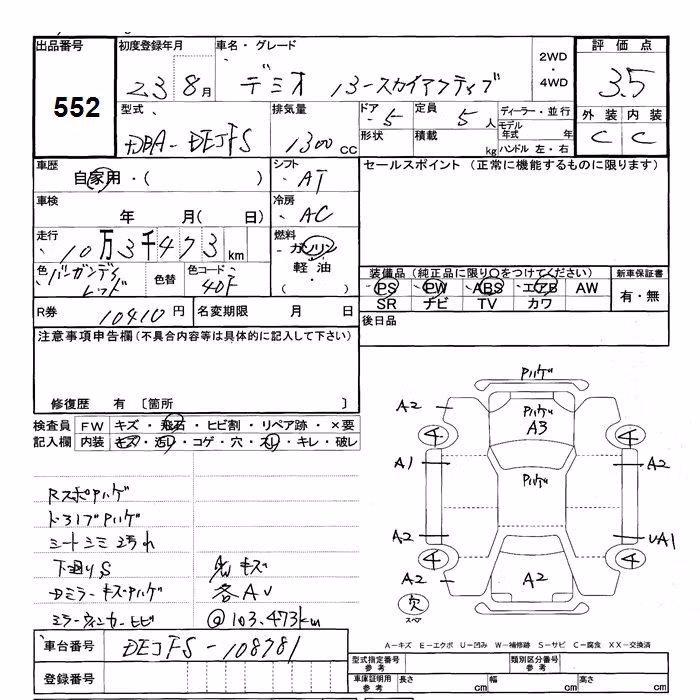 出品番号 初度登録年月 車名・グレード 2WD ・ 4WD 評価点
552 23 8月 デミオ 13-スカイアクティブ 3.5
型式 排気量 ドア 5 定員 5人 ディーラー・並行 外装 内装
DBA-DEJFS 1300cc 形状 積載 kg モデル年式 年 ハンドル 左・右 C C
車歴 自家用・( ) シフト AT セールスポイント (正常に機能するものに限ります)
車検 年 月( 日) 冷房 AC
走行 10万3千473km 燃料 ガソリン 軽油・( )
色 バーガンディレッド 色替 色コード 40F 装備品 (純正品に限り○をつけてください) 新車保証書
PS PW ABS エアB AW 有・無
SR ナビ TV カワ
R券 10410円 名変期限 月 日 後日品
注意事項申告欄 (不具合内容等は具体的に記入して下さい)
修復歴 有 〔箇所 〕
検査員 FW キズ・飛石・ヒビ割・リペア跡・×要
記入欄 内装 キズ・汚レ・コゲ・穴・スレ・キレ・破レ
Pハゲ
A2 Pハゲ
A3
4 4
A1 Pハゲ A2
A2 UA1
4 4
A2 A2
欠
スペア
RスポPハゲ
ドアノブPハゲ
シート シミ 汚れ
下廻りS キズ
Dミラーキズ Pハゲ 各AU
ミラーウィンカーヒビ @103,473km
A-キズ E-エクボ U-凹み W-補修跡 S-サビ C-腐食 XX-交換済
車台番号 DEJFS-108781
登録番号
型式指定番号 参考 類別区分番号 参考
車庫証明用 参考 長さ cm 幅 cm 高さ cm